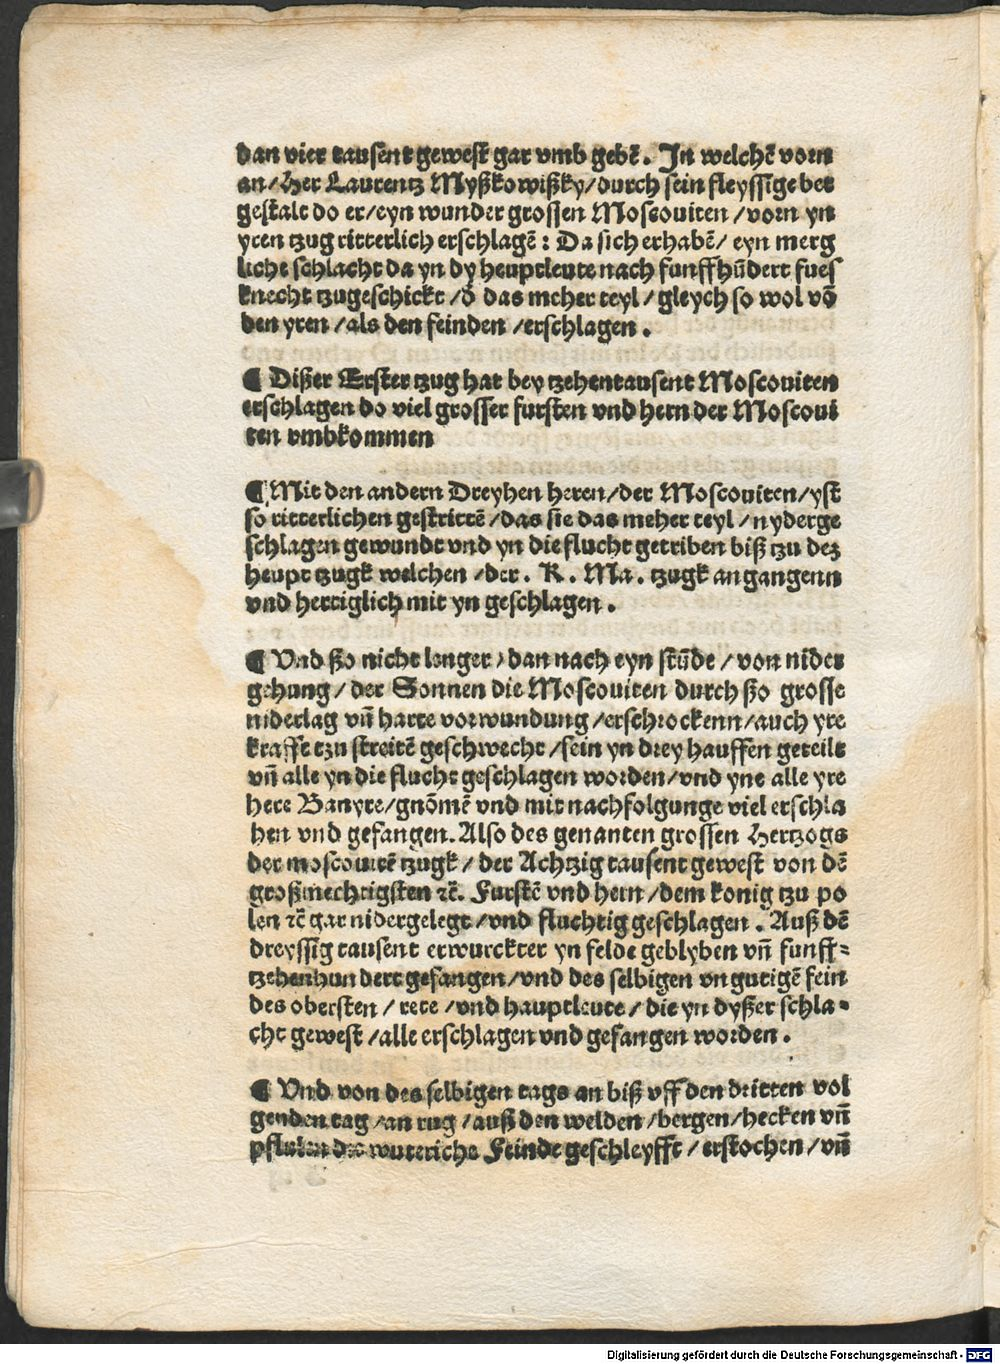 dan vier tausent gewest gar vmb gebē. In welchē vorn
an/Her Laurentz Myßkowißky/durch sein fleyssige bet
gestalt do er/eyn wunder grossen Moscouiten/vorn yn
yren tzug ritterlich erschlagē: Da sich erhabē/ eyn merg
liche schlacht da yn dy heuptleute nach funffhūdert fues
knecht tzugeschickt/ď das meher teyl/gleych so wol vō
den yren/als den feinden/erschlagen.
¶ Dißer Erster tzug hat bey tzehentausent Moscouiten
erschlagen do viel grosser fursten vnd hern der Moscoui
ten vmbkommen
¶ Mit den andern Dreyhen heren/der Moscouiten/yst
so ritterlichen gestrittē/das sie das meher teyl/nyderge
schlagen gewundt vnd yn die flucht getriben biß tzu dez
heupt tzugk welchen/der. K. Ma. tzugk an gangenn
vnd hertiglich mit yn geschlagen.
¶ Vnd ßo nicht lenger/dan nach eyn stūde/von nider
gehung/der Sonnen die Moscouiten durch ßo grosse
niderlag vñ harte vorwundung/erschrockenn/auch yre
krafft tzu streitē geschwecht/sein yn drey hauffen geteilt
vñ alle yn die flucht geschlagen worden/vnd yne alle yre
here Banyre/gnōmē vnd mit nachfolgunge viel erschla
hen vnd gefangen. Also des genanten grossen Hertzogs
der moscouitē tzugk/der Achtzig tausent gewest von dē
großmechtigsten ꝛc̄. Furstē vnd hern/dem konig tzu po
len ꝛc̄ gar nidergelegt/vnd fluchtig geschlagen. Auß dē
dreyssig tausent erwurckter yn felde geblyben vñ funff⸗
tzehenhun dert gefangen/vnd des selbigen vngutigē fein
des obersten/rete/vnd hauptleute/die yn dyßer schla⸗
cht gewest/alle erschlagen vnd gefangen worden.
¶ Vnd von des selbigen tags an biß vff den dritten vol
genden tag/an rug/auß den welden/bergen/hecken vñ
pfiulen die wuteriche Feinde geschleyfft/erstochen/vñ
Digitalisierung gefördert durch die Deutsche Forschungsgemeinschaft - DFG